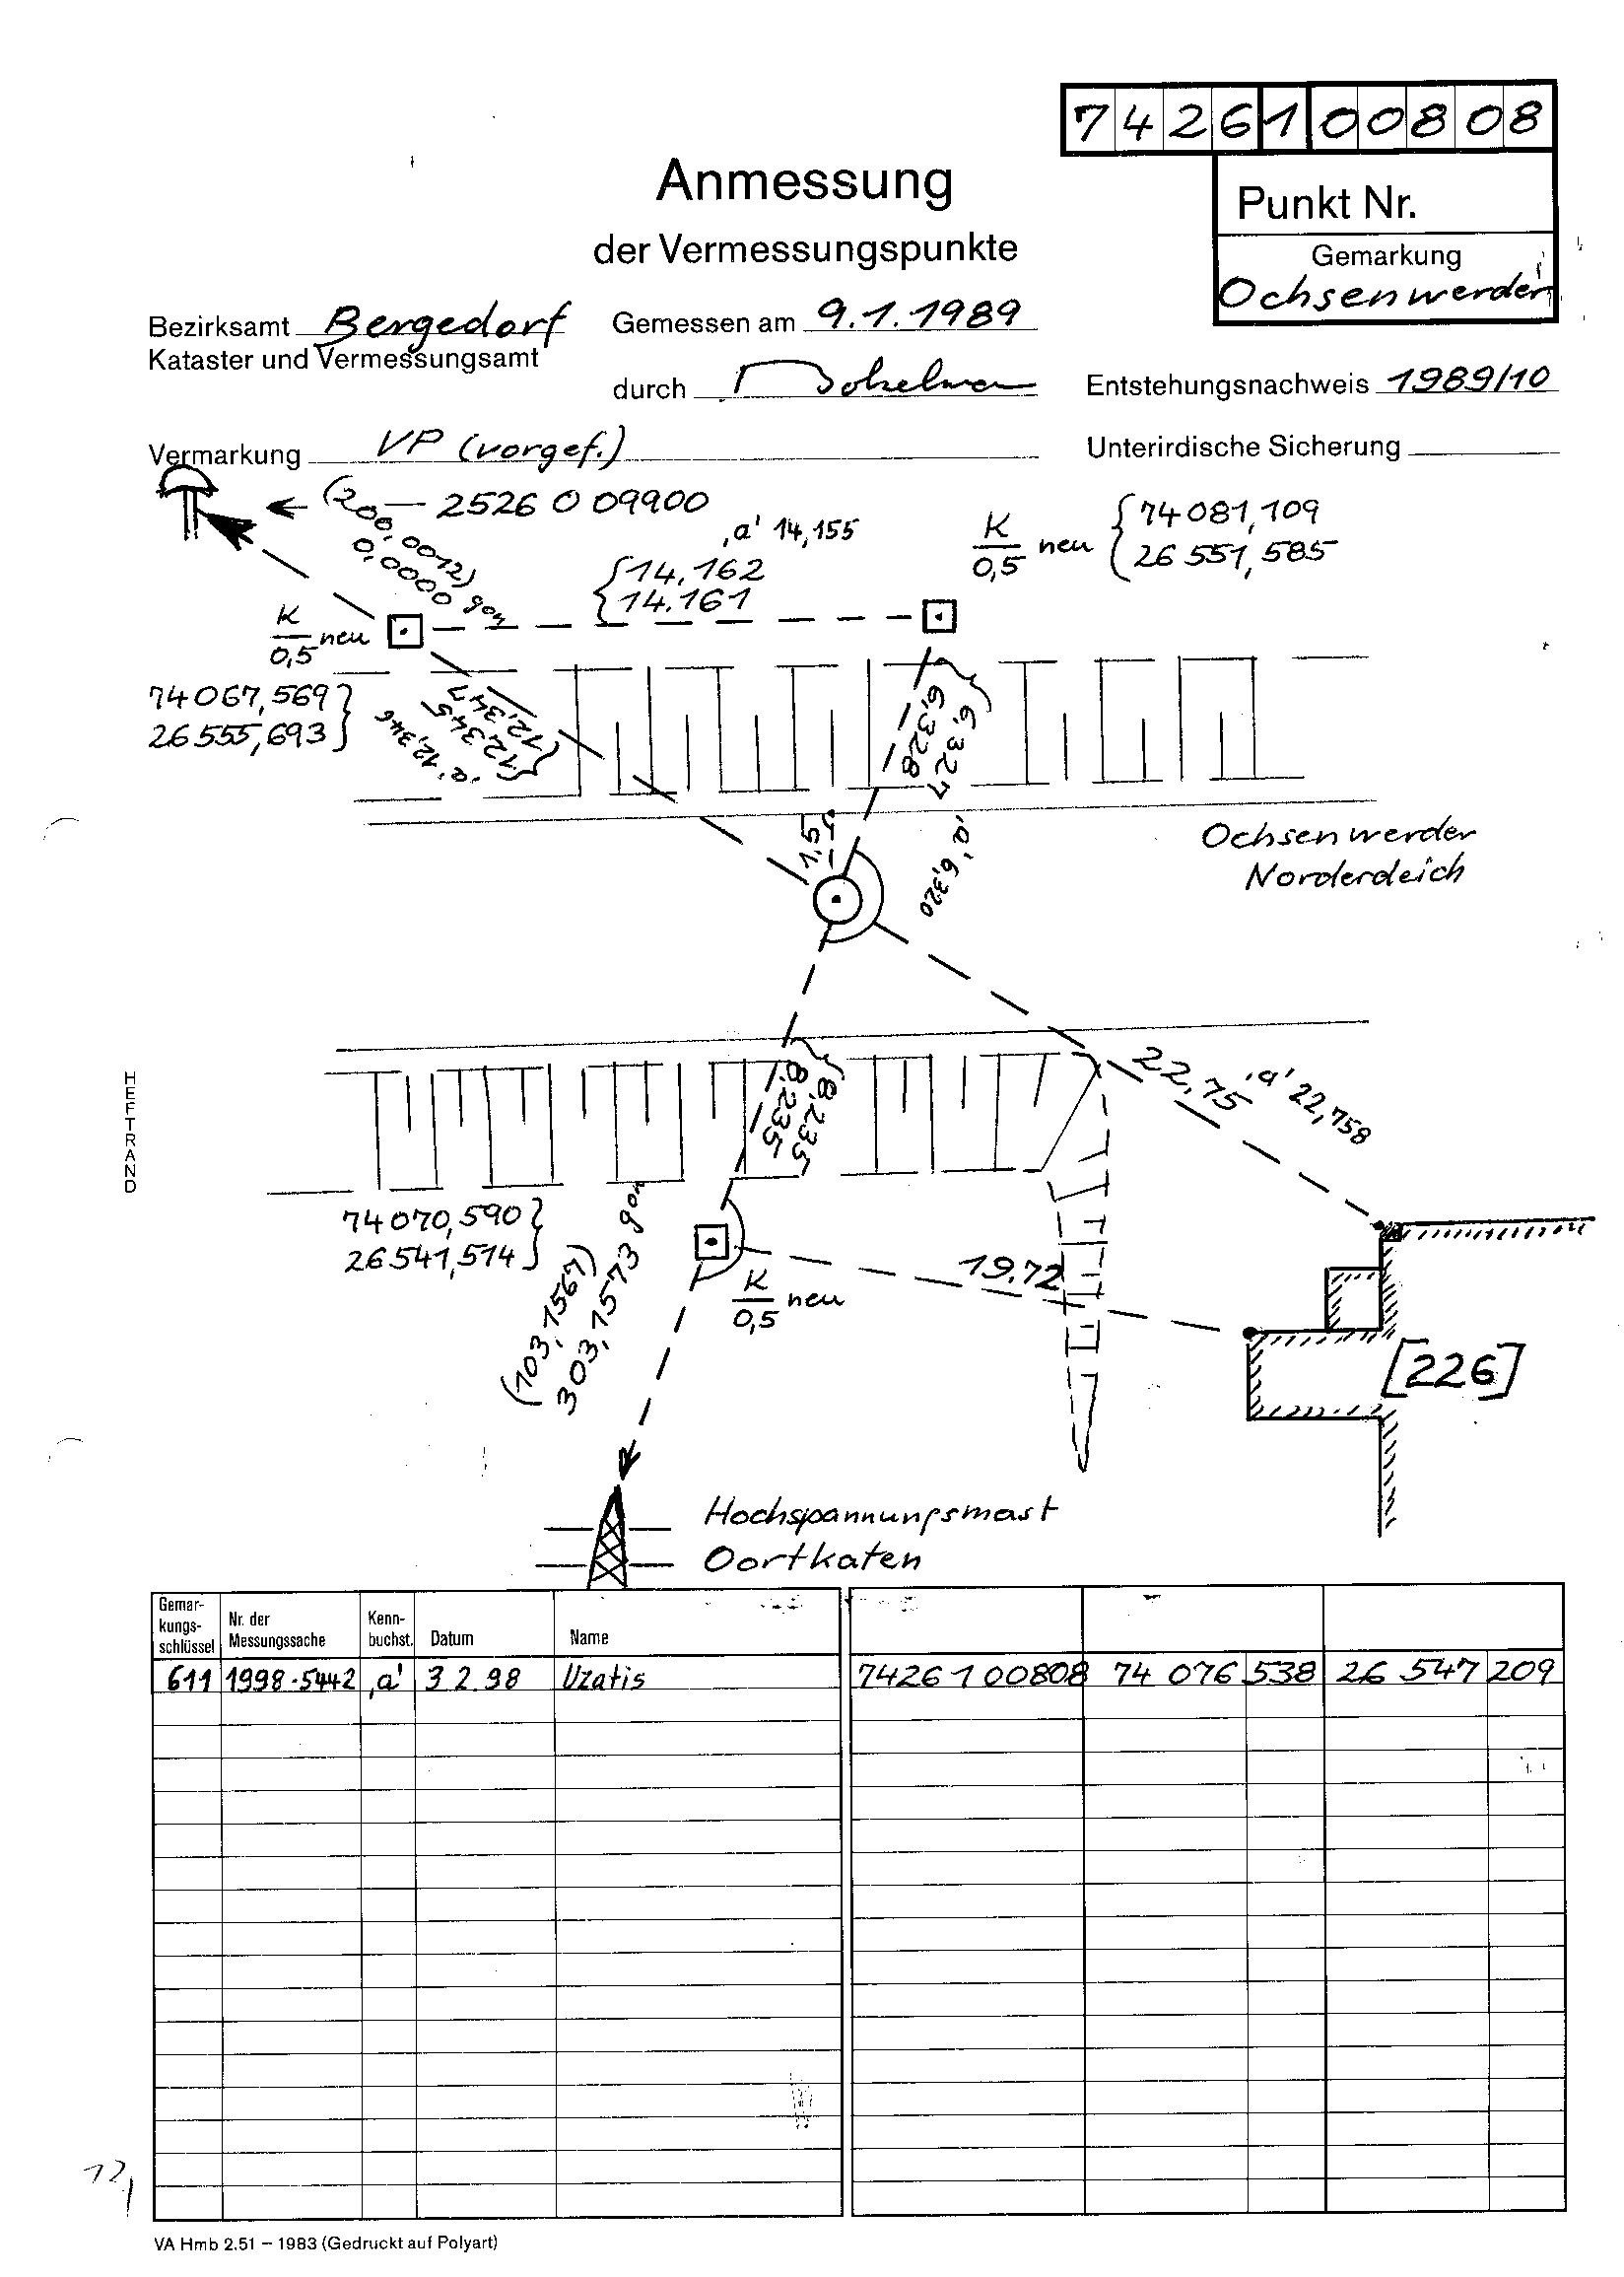 7426100808
Anmessung
der Vermessungspunkte
Punkt Nr.
Gemarkung
Ochsenwerder
Bezirksamt Bergedorf
Kataster und Vermessungsamt
Gemessen am 9.1.1989
durch
Entstehungsnachweis 1989/10
Vermarkung VP (vorgef.)
Unterirdische Sicherung
2526 0 09900
(200,0012)
0,0000 gon
'a' 14,155
14,162
14.161
K
0,5 neu
74081,109
26551,585
K
0,5 neu
74067,569
26555,693
12,347
12,345
'a' 12,346
6,328
6,327
'a' 6,320
1,95
Ochsenwerder
Norderdeich
8,235
8,235
22,75
'a' 22,758
HEFTRAND
74070,590
26541,514
(103,1567)
303,1573 gon
K
0,5 neu
19.72
[226]
Hochspannungsmast
Oortkaten
Gemar-
kungs-
schlüssel
Nr. der
Messungssache
Kenn-
buchst.
Datum
Name
611 1998-5442 'a' 3 2.98 Uzatis 7426100808 74 076 538 26 547 209
VA Hmb 2.51 – 1983 (Gedruckt auf Polyart)